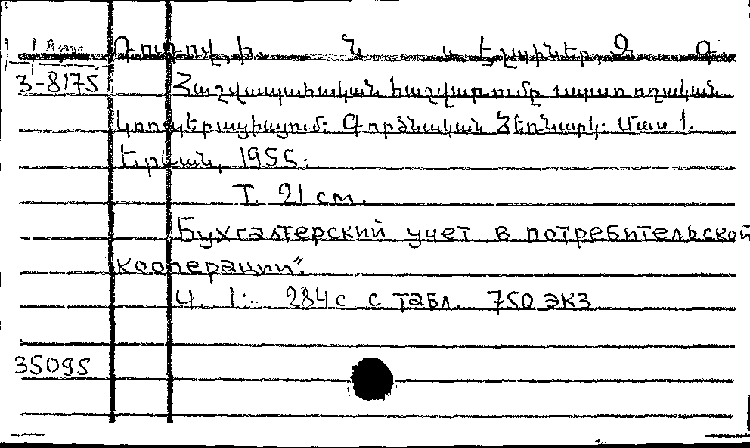 3-8175
Հաշվապահական հաշվառումը սպառողական
կոոպերացիայում: Գործնական Ձեռնարկ: Մաս 1.
Երևան, 1955.
T. 21 cm.
Бухгалтерский учет в потребительской
кооперации".
Ч. 1: 284 с с табл. 750 экз
35095